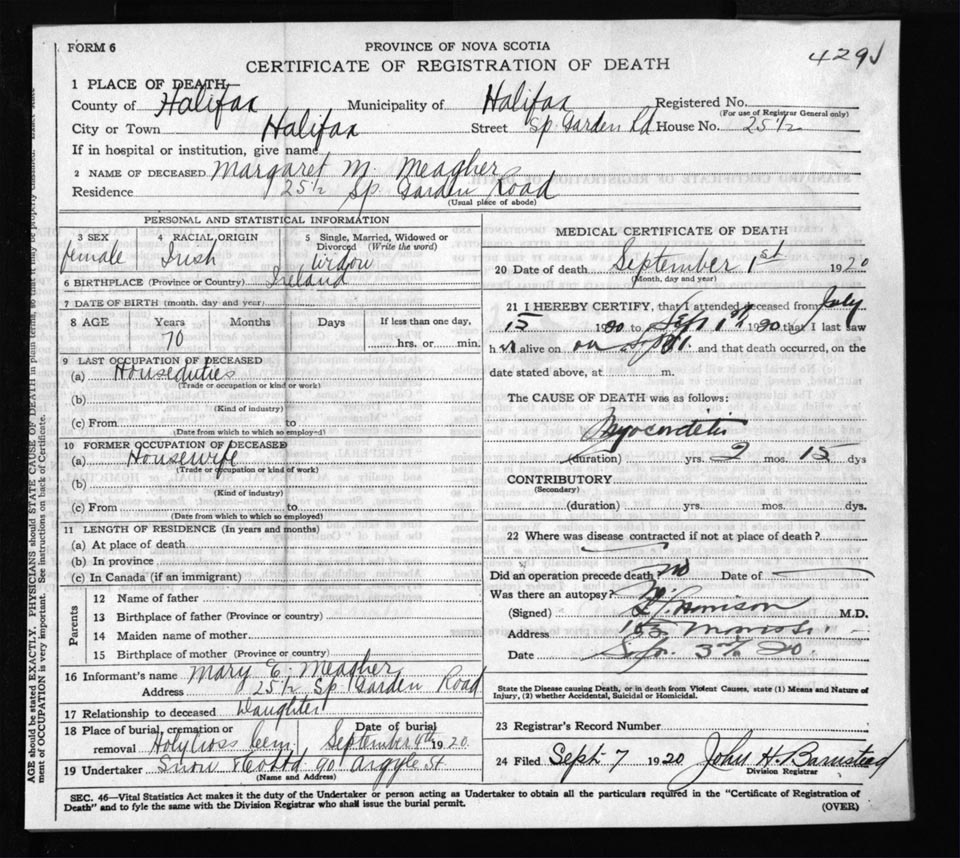 FORM 6
PROVINCE OF NOVA SCOTIA
CERTIFICATE OF REGISTRATION OF DEATH
429
1 PLACE OF DEATH
County of Halifax Municipality of Halifax Registered No.
(For use of Registrar General only)
City or Town Halifax Street Sp. Garden Rd House No. 25½
If in hospital or institution, give name
2 NAME OF DECEASED Margaret M. Meagher
Residence 25½ Sp. Garden Road
(Usual place of abode)
PERSONAL AND STATISTICAL INFORMATION
3 SEX
female
4 RACIAL ORIGIN
Irish
5 Single, Married, Widowed or
Divorced (Write the word)
Widow
6 BIRTHPLACE (Province or Country) Ireland
7 DATE OF BIRTH (month, day and year)
8 AGE Years Months Days If less than one day,
70 hrs. or min.
9 LAST OCCUPATION OF DECEASED
(a) Houseduties
(Trade or occupation or kind or work)
(b)
(Kind of industry)
(c) From to
(Date from which to which so employed)
10 FORMER OCCUPATION OF DECEASED
(a) Housewife
(Trade or occupation or kind of work)
(b)
(Kind of industry)
(c) From to
(Date from which to which so employed)
11 LENGTH OF RESIDENCE (In years and months)
(a) At place of death
(b) In province
(c) In Canada (if an immigrant)
Parents
12 Name of father
13 Birthplace of father (Province or country)
14 Maiden name of mother
15 Birthplace of mother (Province or country)
16 Informant's name Mary E. Meagher
Address 25½ Sp. Garden Road
17 Relationship to deceased Daughter
18 Place of burial, cremation or Date of burial
removal Holy Cross Cem. September 4th 1920
19 Undertaker Snow 90 Argyle St
(Name and Address)
MEDICAL CERTIFICATE OF DEATH
20 Date of death September 1st 1920
(Month, day and year)
21 I HEREBY CERTIFY, that I attended deceased from July
15 1920 to Sept 1st 1920 that I last saw
h alive on Sept 1. and that death occurred, on the
date stated above, at m.
The CAUSE OF DEATH was as follows:
Myocarditis
(duration) yrs. 2 mos. 15 dys
CONTRIBUTORY
(Secondary)
(duration) yrs. mos. dys.
22 Where was disease contracted if not at place of death?
Did an operation precede death? no Date of
Was there an autopsy? no
(Signed) Morrison M.D.
Address Morris St.
Date Sept. 3rd 20
State the Disease causing Death, or in death from Violent Causes, state (1) Means and Nature of
Injury, (2) whether Accidental, Suicidal or Homicidal.
23 Registrar's Record Number
24 Filed Sept. 7 1920 John H. Barnstead
Division Registrar
SEC. 46—Vital Statistics Act makes it the duty of the Undertaker or person acting as Undertaker to obtain all the particulars required in the "Certificate of Registration of
Death" and to fyle the same with the Division Registrar who shall issue the burial permit.
(OVER)
AGE should be stated EXACTLY. PHYSICIANS should STATE CAUSE OF DEATH in plain terms, so that it may be properly classified.
ment of OCCUPATION is very important. See instructions on back of Certificate.